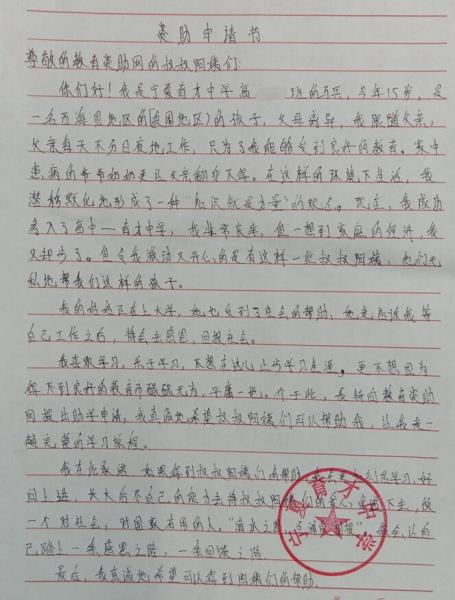 资助申请书
尊敬的教育资助网的叔叔阿姨们:
你们好!我是宁夏育才中学高 班的 ,今年15岁,是
一名西海固地区的(贫困地区)的孩子,父母离异,我跟随父亲,
父亲每天不分日夜地工作,只为了我能够受到良好的教育。家中
患病的爷爷奶奶更让父亲 。在这样的环境下生活,我
潜移默化地形成了一种“知识就是力量”的观念。现在,我成功
考入了高中——育才中学,我非常欢喜,但一想到家庭的经济,我
又却步了。但令我激动又开心的是有这样一些叔叔阿姨,他们无
私地帮我们这样的孩子。
我的妈妈正在上大学,她也受到了社会的帮助,她来告诉我等
自己工作之后,将会去感恩,回报社会。
我喜欢学习,乐于学习,不想在这儿止步学习 。更不想因为
得不到良好的教育而碌碌无为,平庸一世。介于此,我特向教育资助
网提出助学申请,我真诚地希望叔叔阿姨们可以帮助我,让我走一
趟完整的学习旅程。
我在此承诺,如果得到叔叔阿姨们的帮助, 学习,好
问上进,长大后尽自己的能力去将叔叔阿姨们的 下去,做
一个对社会,对国家有用的人,“滴水之恩, ”我会让自
己踏上一条感恩之路,一条回馈之路。
最后,我真诚地希望可以得到阿姨们的帮助。
宁夏育才中学